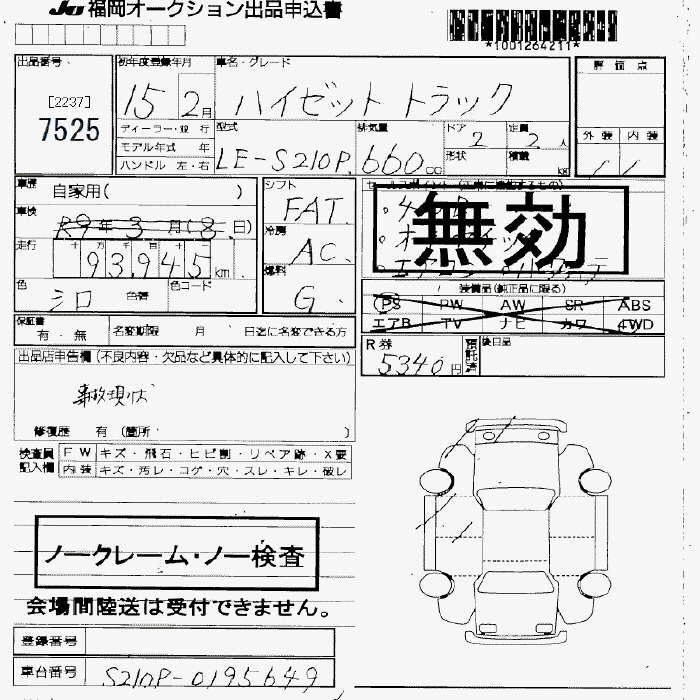 JU 福岡オークション出品申込書
*1001264211*
出品番号
[2237]
7525
初年度登録年月
15 2月
車名・グレード
ハイゼット トラック
評価点
外装 内装
ディーラー・並行
モデル年式 年
ハンドル 左・右
型式
LE-S210P
排気量
660cc
ドア
2
形状
定員
2人
積載
kg
車歴 自家用( )
車検
R9年3月(8日)
走行
十 万 千 百 十 一
93,945km
色
シロ
色替
色コード
シフト
FAT.
冷房
AC.
燃料
G.
セールスポイント
無効
装備品(純正品に限る)
PS PW AW SR ABS
エアB TV ナビ カワ 4WD
保証書
有・無
名変期限 月 日迄に名変できる方
R券
5340円
預託済
後日品
出品店申告欄(不良内容・欠品など具体的に記入して下さい)
事故現状
修復歴 有(箇所: )
検査員記入欄
FW キズ・飛石・ヒビ割・リペア跡・X要
内装 キズ・汚レ・コゲ・穴・スレ・キレ・破レ
ノークレーム・ノー検査
会場間陸送は受付できません。
登録番号
車台番号 S210P-0195649